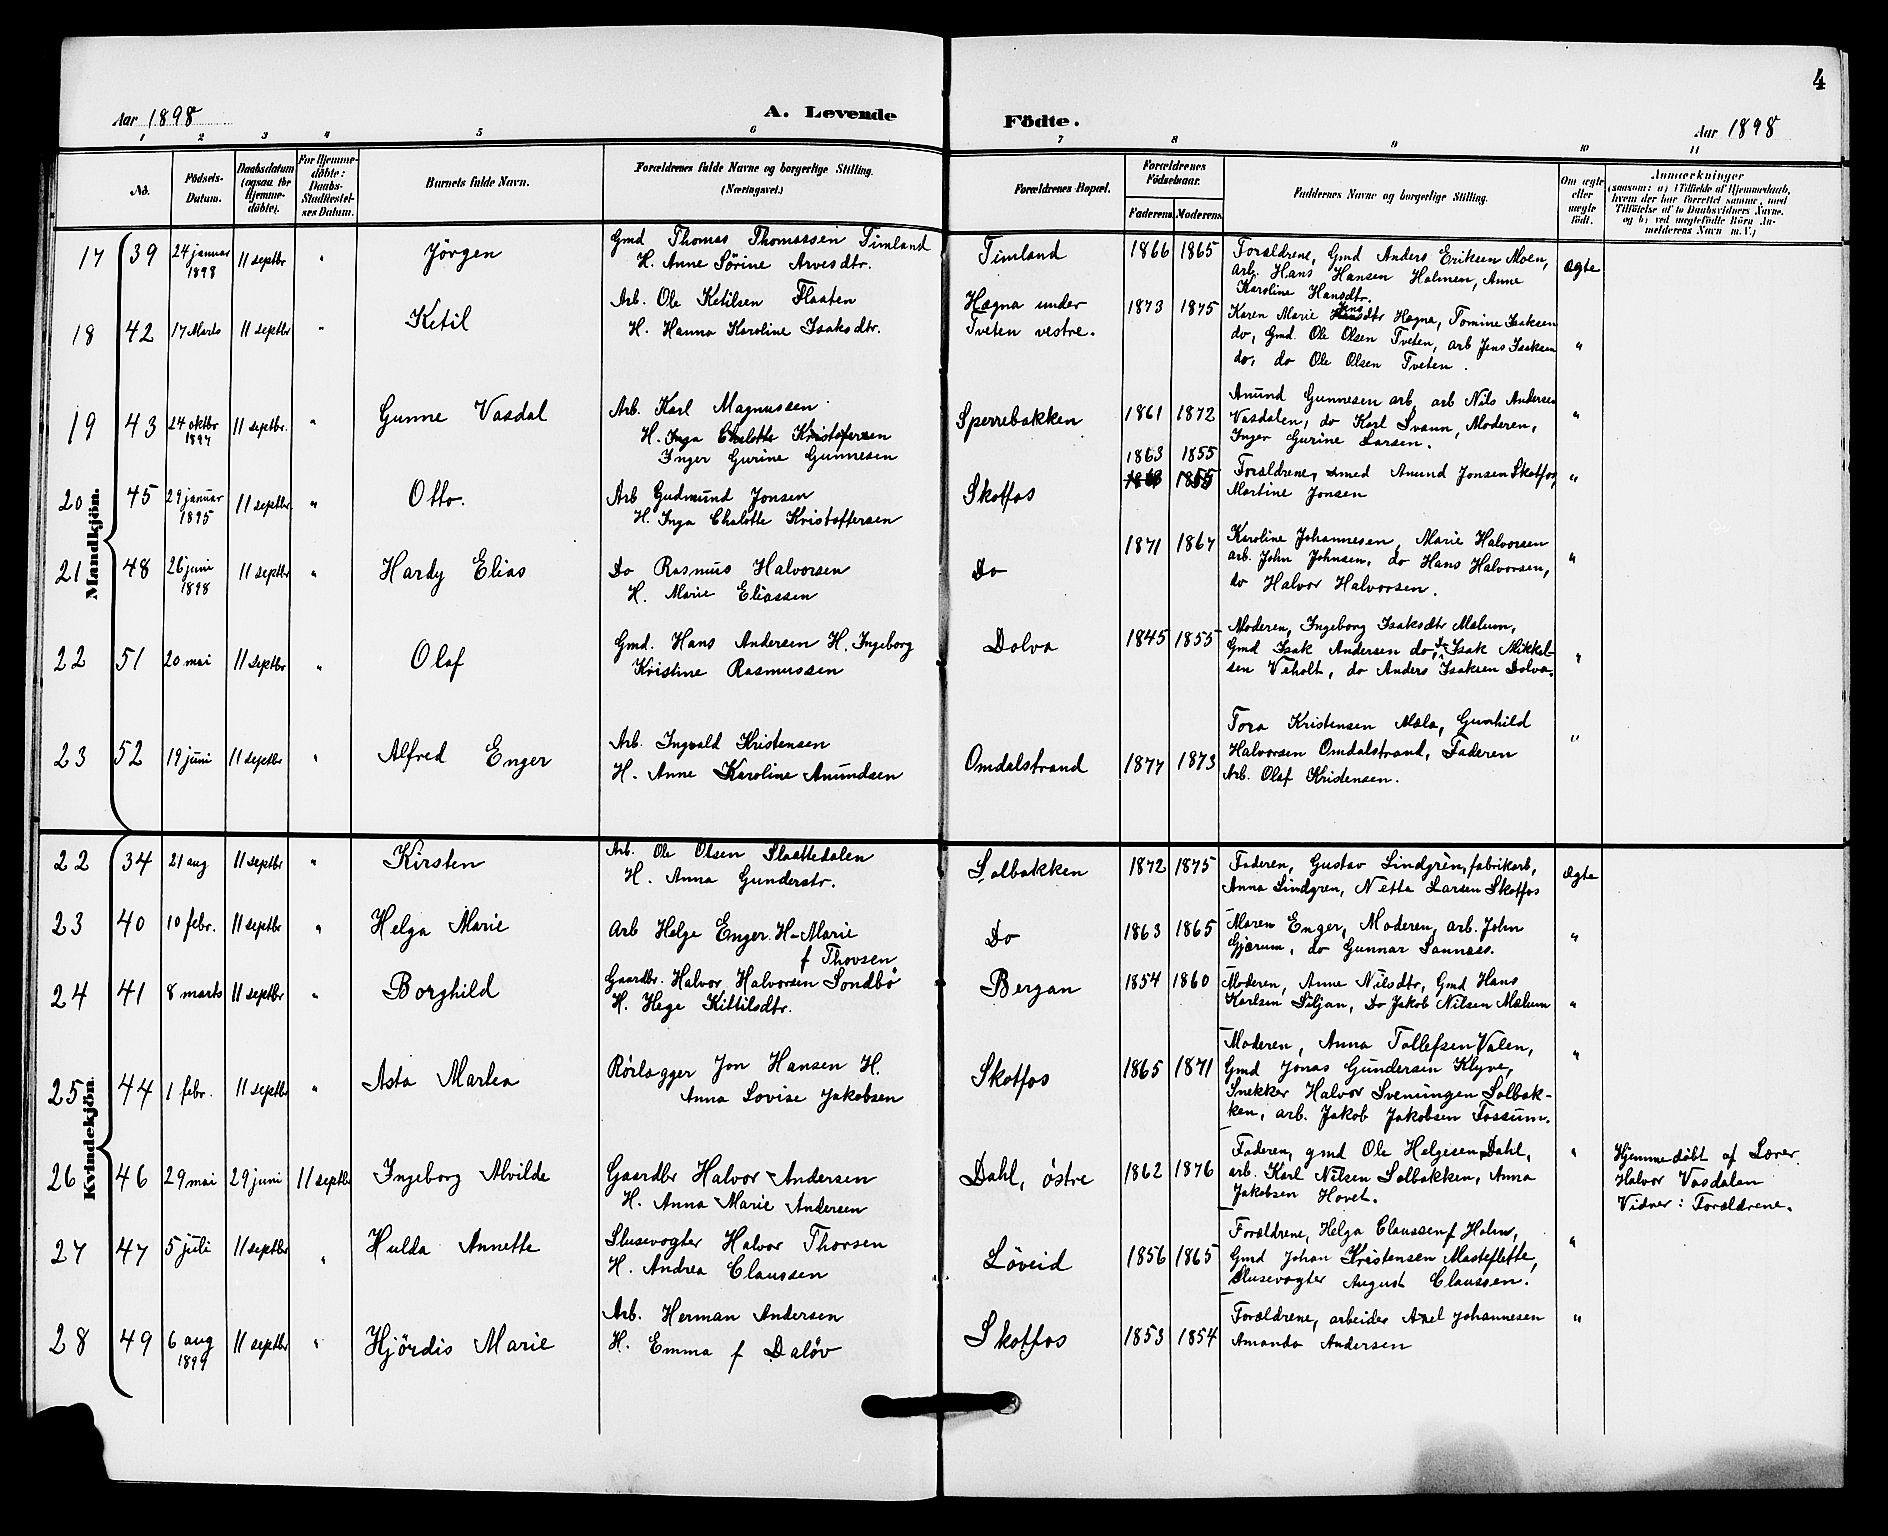 4
Aar 1898
A. Levende
Födte.
Aar 1898
1 2 3 4 5 6 7 8 9 10 11
No.
Födsels-Datum.
Daabsdatum (ogsaa for Hjemme-döbte).
For Hjemme-döbte: Daabs-Stadfæstel-ses Datum.
Barnets fulde Navn.
Forældrenes fulde Navne og borgerlige Stilling. (Næringsvei.)
Forældrenes Bopæl.
Forældrenes Födselsaar.
Faderens. Moderens.
Faddernes Navne og borgerlige Stilling.
Om ægte eller uægte födt.
Anmærkninger
(saasom: a) i Tilfælde af Hjemmedaab,
hvem der har forrettet samme, med
Tilföielse af to Daabsvidners Navne,
og b) ved uægtefödte Börn An-
melderens Navn m. V.)
Mandkjön.
17 39 24 januar 1898 11 septbr " Jörgen
Gmd Thomas Thomassen Timland
H. Anne Sörine Arvesdtr.
Timland 1866 1865
Forældrene, Gmd Anders Eriksen Moen,
arb. Hans Hansen Holmen, Anne
Karoline Hansdtr.
Ægte
18 42 17 Marts 11 septbr " Ketil
Arb. Ole Ketilsen Flaaten
H. Hanna Karoline Isaksdtr.
Hagna under
Tveten vestre.
1873 1875
Karen Marie Jensdtr Hagna, Tomine Isaksen
do, Gmd. Ole Olsen Tveten, arb Jens Isaksen
do, do Ole Olsen Tveten.
"
19 43 24 oktbr 1897 11 septbr. " Gunne Vasdal
Arb. Karl Magnussen
H. Inga Chalotte Kristofersen
Inger Gurine Gunnesen
Sperrebakken 1861 1872
Anund Gunnesen arb, arb Nils Andersen
Vasdalen, do Karl Svann, Moderen,
Inger Gurine Larsen.
"
20 45 29 januar 1895 11 septbr " Otto.
Arb Gudmund Jonsen
H. Inga Chalotte Kristoffersen
Skotfos
1863 1855
1863 1855
Forældrene, smed Anund Jonsen Skotfos,
Martine Jonsen
"
21 48 26 juni 1898 11 septbr " Hardy Elias
Do Rasmus Halvorsen
H. Marie Eliassen
Do 1871 1867
Karoline Johannesen, Marie Halvorsen
arb. John Johnsen, do Hans Halvorsen,
do Halvor Halvorsen.
"
22 51 20 mai 11 septbr " Olaf
Gmd. Hans Andersen H. Ingeborg
Kristine Rasmussen
Dolva 1845 1855
Moderen, Ingeborg Isaksdtr Mælum,
Gmd Isak Andersen do, do Isak Mikkel-
sen Veholt, do Anders Isaksen Dolva.
"
23 52 19 juni 11 septbr " Alfred Enger
Arb. Ingvald Kristensen
H. Anne Karoline Anundsen
Omdalstrand 1877 1873
Tora Kristensen Mæla, Gunhild
Halvorsen Omdalstrand, Faderen
Arb. Olaf Kristensen.
"
Kvindekjön.
22 34 21 aug 11 septbr " Kirsten
Arb. Ole Olsen Slaattedalen
H. Anna Gunderstr.
Solbakken 1872 1875
Faderen, Gustav Lindgrèn, fabrikarb,
Anna Lindgren, Netta Larsen Skotfos
Ægte
23 40 10 febr. 11 septbr " Helga Marie
Arb Helge Enger. H. Marie
f Thovsen
Do 1863 1865
Maren Enger, Moderen, arb. John
Gjærum, do Gunnar Sannæss.
"
24 41 8 marts 11 septbr " Borghild
Gaardbr. Halvor Halvorsen Sondbö
H. Hege Kittilsdtr.
Bergan 1854 1860
Moderen, Anne Nilsdtr, Gmd Hans
Karlsen Siljan, Do Jakob Nilsen Mælum
"
25 44 1 febr. 11 septbr " Asta Martea
Rörlægger Jon Hansen H.
Anna Lovise Jakobsen
Skotfos 1865 1871
Moderen, Anna Tollefsen Valen,
Gmd Jonas Gundersen Klyve,
Snekker Halvor Sveningen Solbak-
ken, arb. Jakob Jakobsen Fossum.
"
26 46 29 mai 29 juni 11 septbr Ingeborg Alvilde
Gaardbr Halvor Andersen
H. Anna Marie Andersen
Dahl, östre 1862 1876
Faderen, gmd Ole Helgesen Dahl,
arb. Karl Nilsen Solbakken, Anna
Jakobsen Hovet.
"
Hjemmedöbt af Lærer
Halvor Vasdalen
Vidner: Forældrene.
27 47 5 juli 11 septbr " Hulda Annette
Slusevogter Halvor Thorsen
H. Andrea Claussen
Löveid 1856 1865
Forældrene, Helga Claussen f Holm,
Gmd Johan Kristensen Masteflette,
Slusevogter August Claussen.
"
28 49 6 aug 1897 11 septbr " Hjördis Marie
Arb. Herman Andersen
H. Emma f Daløv
Skotfos 1853 1854
Forældrene, arbeider Axel Johannesen
Amanda Andersen
"